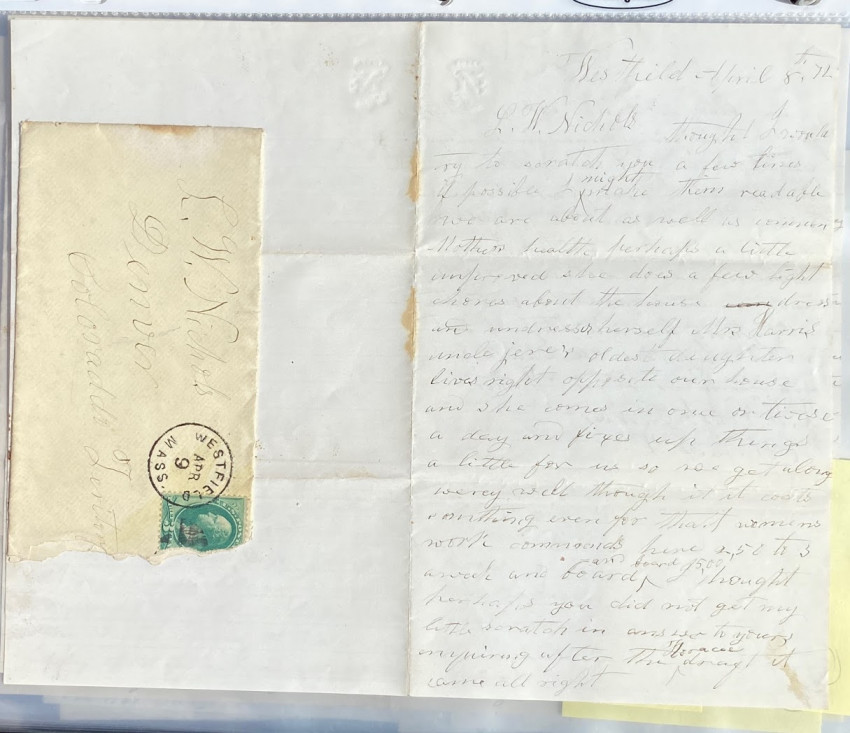 Westfield April 8th, 72
L. W. Nichols thought I would
try to scratch you a few lines
if possible I might make them readable
we are about as well as common
Mothers health perhaps a little
improved she does a few light
chores about the house dress
and undress herself Mrs Harris
uncle jere's oldest daughter
lives right opposite our house
and she comes in once or twice
a day and fixes up things
a little for us so we get along
very well though it it costs
something even for that womens
work commands here 2,50 to 3
a week and board, and board $5.00, I thought
perhaps you did not get my
little scratch in answer to yours
enquiring after the Horace draft it
came all right
L. W. Nichols
Denver
Colorado
WESTFIELD
APR
9
MASS.